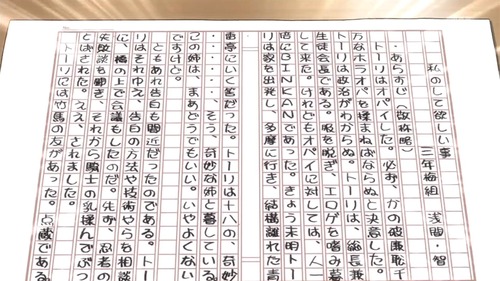 私のして欲しい事
三年梅組 浅間・智
・あらすじ(敬称略)
トーリはオパイした。必ず、かの破廉恥千
万なホラオパを揉まねばならぬと決意した。
トーリは政治がわからぬ。トーリは、総長兼
生徒会長である。服を脱ぎ、エロゲを嗜み暮
して来た。けれどもオパイに対しては、人一
倍にBINKANであった。きょう未明トー
リは家を出発し、多摩に行き、結構離れた青
雷亭にいく筈だった。トーリは十八の、奇妙
な・・・・・・そう、奇妙な姉と暮している。
この姉は、まあどうでもいい。いやよくない
ですけど。
ともあれ告白も間近だったのである。トー
リはそれゆえ、告白の方法や技術やらを相談
に、橋の上で会議もしたのだ。先ず、忍者の
失敗談を聞き、それから騎士の乳揉んでぶっ
とばされた。ええ、されました。
トーリには竹馬の友があった。点蔵である